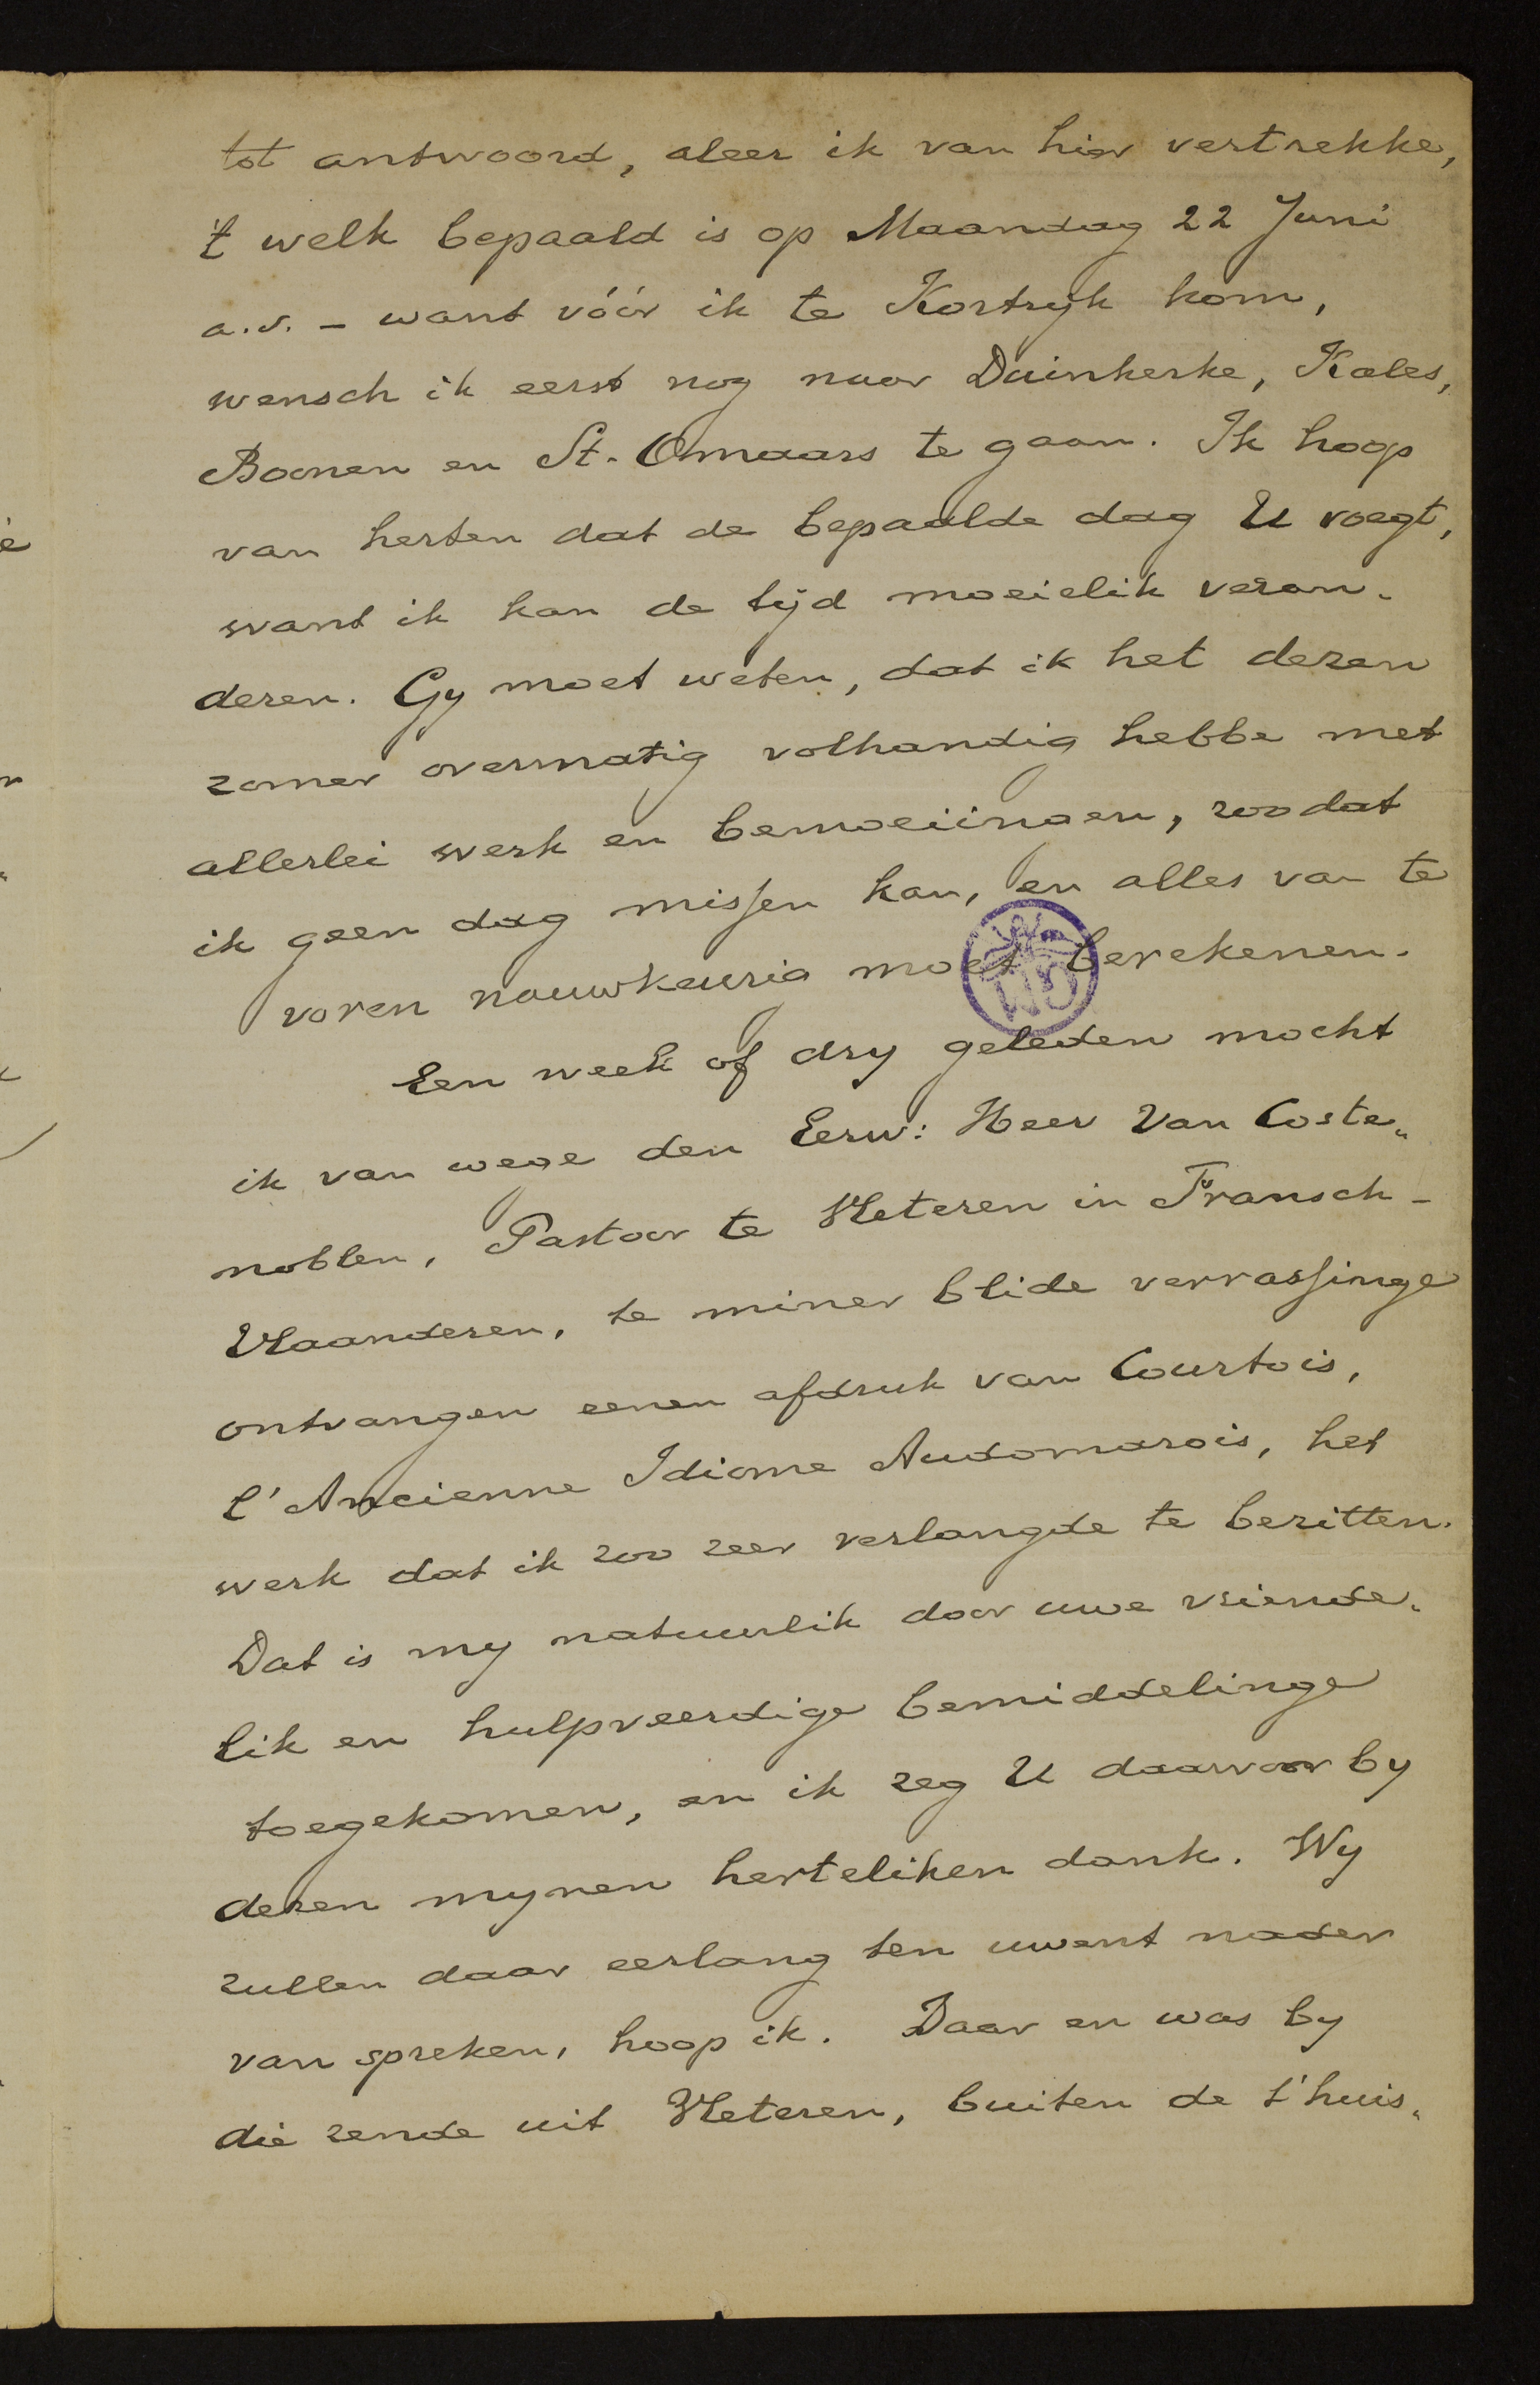 tot antwoord, aleer ik van hier vertrekke,
't welk bepaald is op Maandag 22 Juni
a.s. – want vóór ik te Kortryk kom,
wensch ik eerst nog naar Duinkerke, Kales,
Boonen en St. Omaars te gaan. Ik hoop
van herten dat de bepaalde dag U voegt,
want ik kan de tijd moeielik veran-
deren. Gy moet weten, dat ik het dezen
zomer overmatig volhandig hebbe met
allerlei werk en bemoeiingen, zoodat
ik geen dag missen kan, en alles van te
voren nauwkeurig moet berekenen.
Een week of dry geleden mocht
ik van wege den Eerw: Heer Van Coste-
noblen, Pastoor te Vleteren in Fransch-
Vlaanderen, te miner blide verrassinge
ontvangen eenen afdruk van Courtois,
l'Ancienne Idiome Audomarois, het
werk dat ik zoo zeer verlangde te bezitten.
Dat is my natuurlik door uwe vriende-
lik en hulpveerdige bemiddelinge
toegekomen, en ik zeg U daarvoor by
dezen mynen herteliken dank. Wy
zullen daar eerlang ten uwent nader
van spreken, hoop ik. Daar en was by
die zende uit Vleteren, buiten de t'huis-